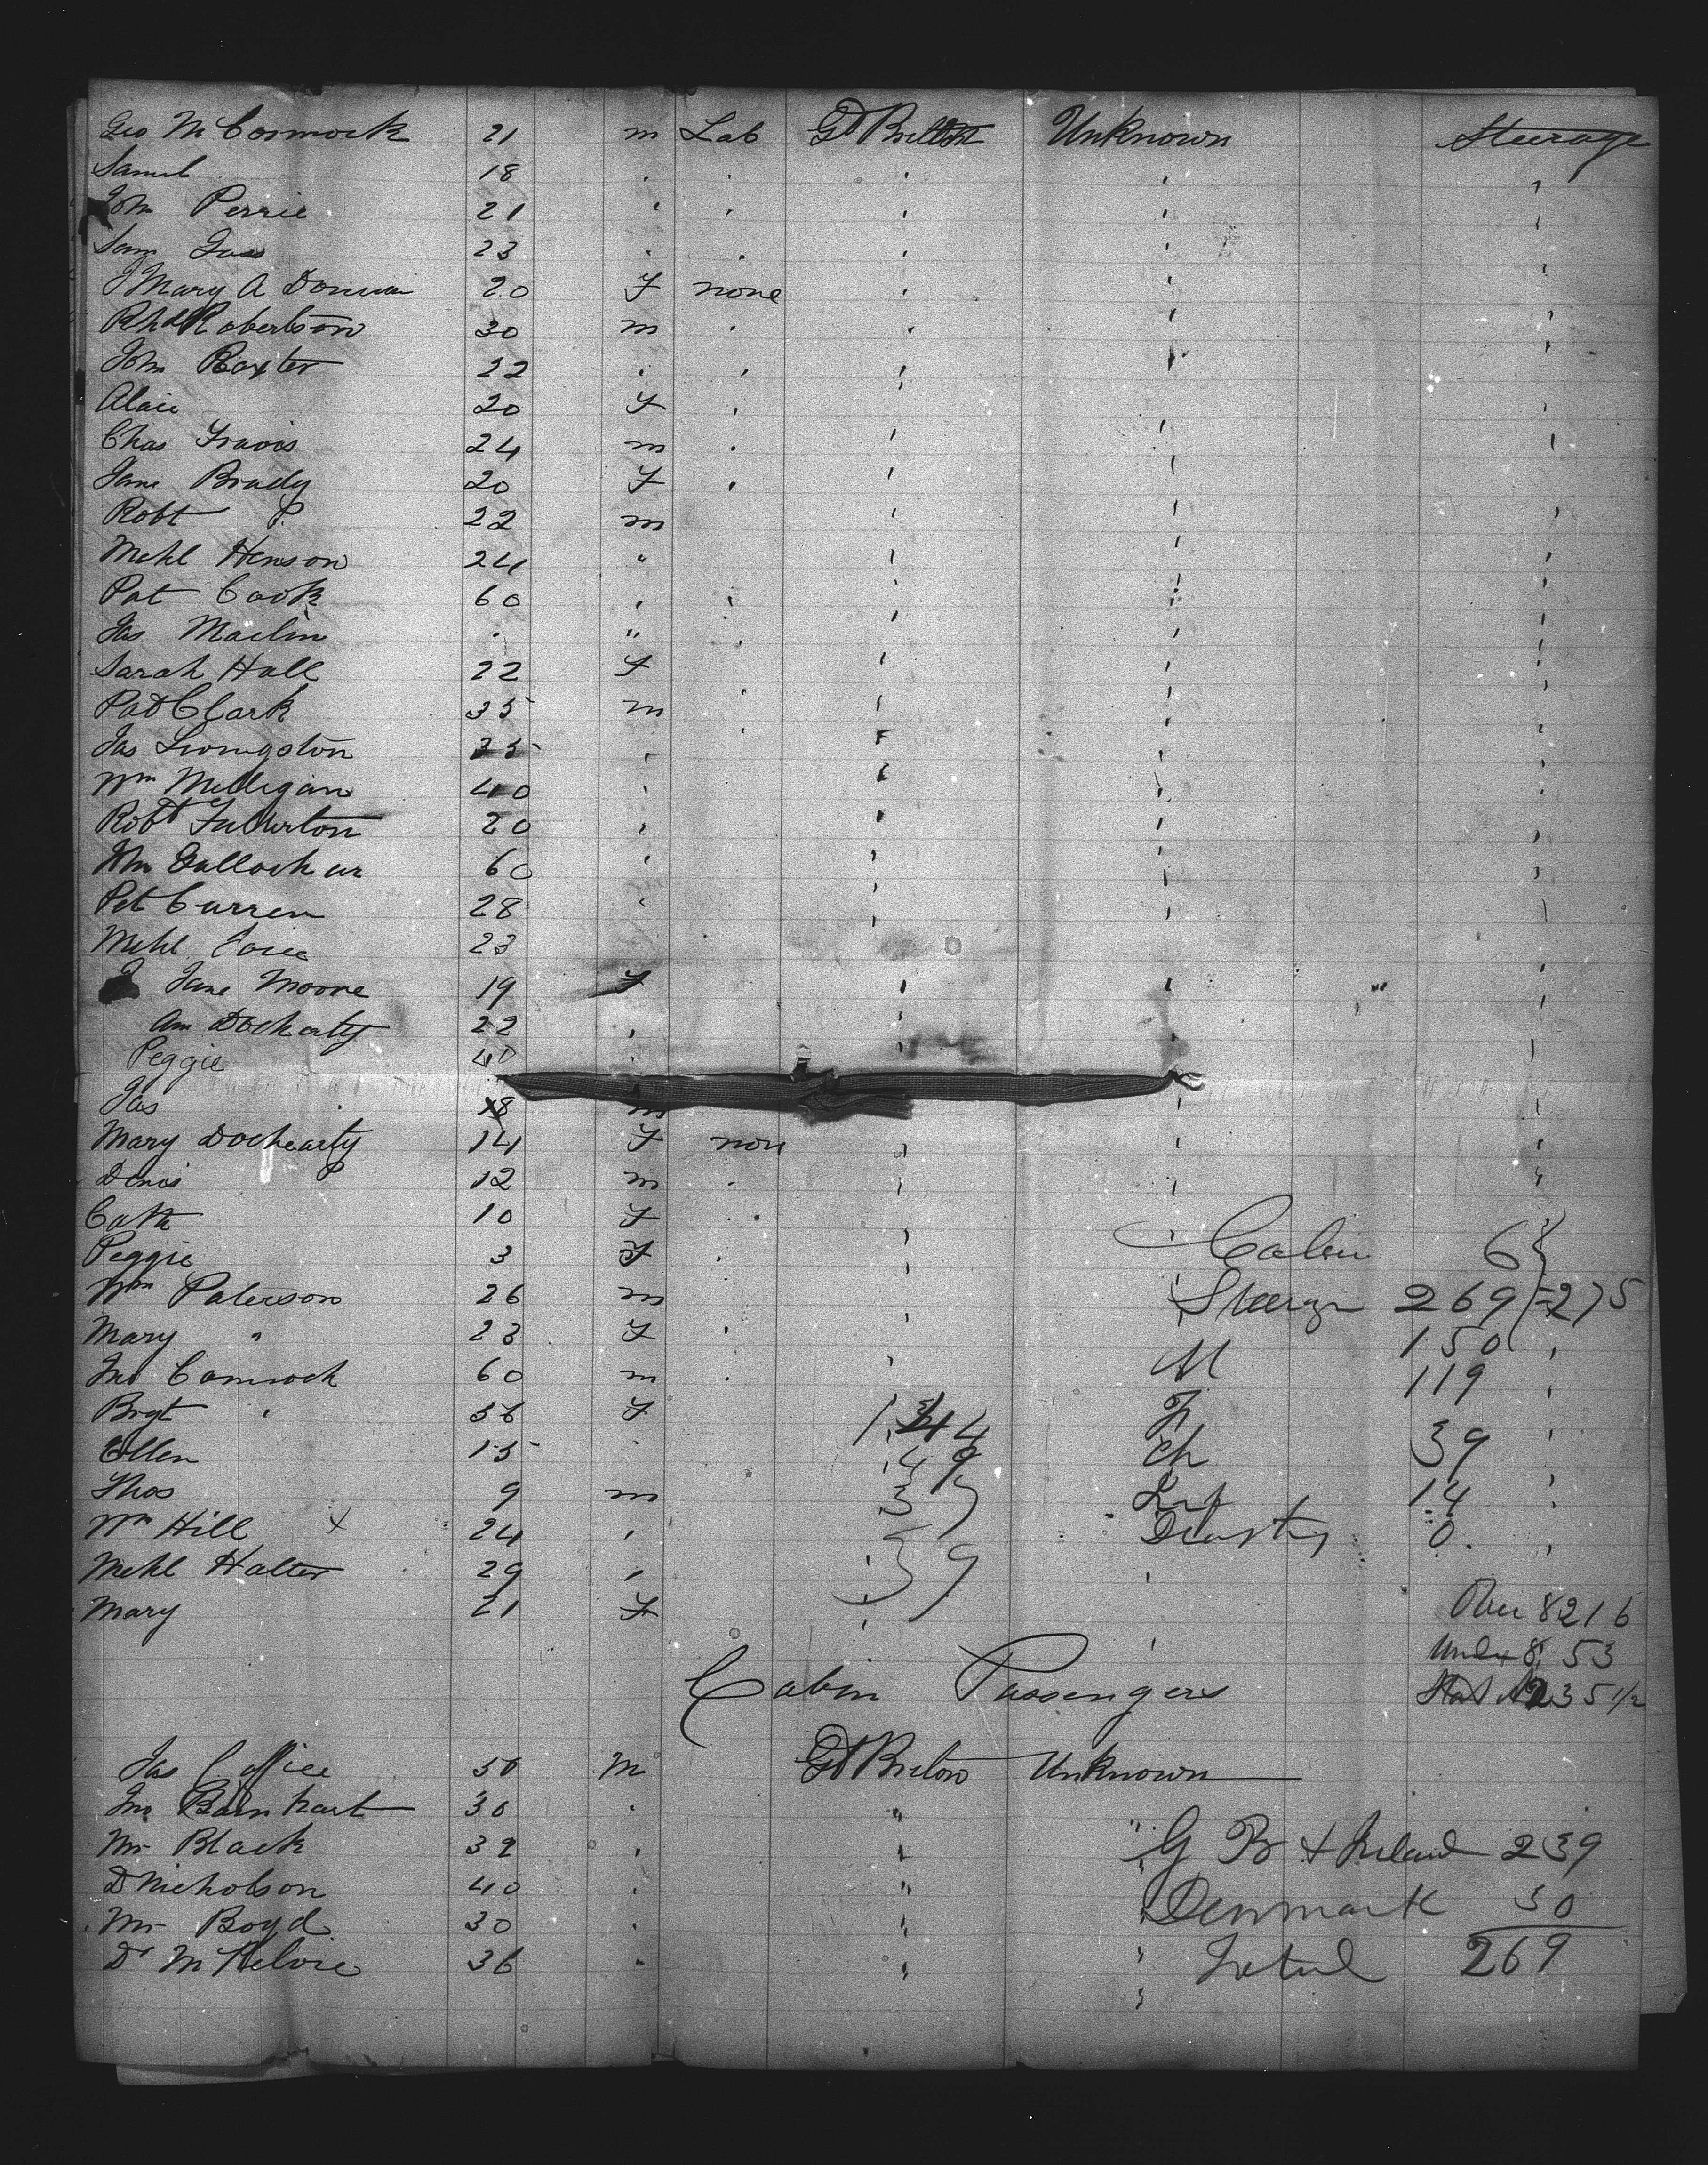 Geo McCormock 21 m Lab Gt Britton Unknown Steerage
Saml 18
Jom Perrie 21
Sam 23
Mary A Donican 20 F none
Rhd Robertson 30 m
Jom Baxter 22
Alaic 20 F
Chas Travis 24 m
Jane Brady 20 F
Robt 22 m
Mchl Henson 24 "
Pat Cook 60
Jas Maclin "
Sarah Hall 22 F
Pat Clark 35 m
Jas Livingston 35
Wm Milligan 40
Robt Fullerton 20
60
Pet Curren 28
Mchl 23
Jane Moore 19 F
Ann Docharty 22
Peggie 40
Jas 18 m
Mary Dochearty 14 F non
Denis 12 m
Cath 10 F
Peggie 3 F
Cabin 6
Wm Paterson 26 m
Steerage 269 = 275
Mary " 23 F
M 150
Jno Comrock 60 m
119
Brgt " 56 F
144 F
Ellen 15
49 Ch 39
Thos 9 m
3 Inf 14
Wm Hill x 24
Deaths 0.
39
Mchl Halter 29
Mary 21 F
Over 8 216
Under 8 53
Cabin Passengers
235 1/2
Jas Coffice 50 M Gt Breton Unknown
Jno Barnhart 30 "
Mr Black 32
G B & Ireland 239
D Nicholson 40 "
Denmark 30
Mr Boyd 30 "
Dr McKelvie 36
Total 269